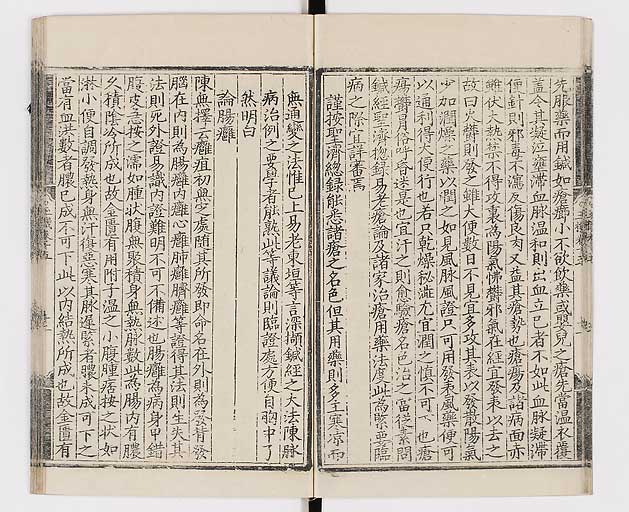 先服藥而用鍼如瘡癤小不欲飲藥或嬰兒之瘡先當温衣覆
盖令其凝泣壅滯血脉温和則出血立已者不如此血脉凝滯
便針則邪毒不瀉反傷良肉又益其瘡勢也瘡瘍及諸病面赤
雖伏大熱禁不得攻裏為陽氣怫欝邪氣在經宜發表以去之
故曰火欝則發之雖大便數日不見宜多攻其表以發散陽氣
少加潤燥之藥以潤之如見風脉風證只可用發表風藥便可
以通利得大便行也若只乾燥秘澁尤宜潤之慎不可下也瘡
瘍欝冒俗呼昏迷是也宜汗之則愈驗瘡名色治之當從素問
鍼經聖濟惣録易老瘡論及諸家治瘡用藥法度此為緊要臨
病之際宜詳審焉
謹按聖濟總録能悉諸瘡之名色但其用藥則多主寒凉而
無通變之法惟已上易老東垣等言深擷鍼經之大法陳脉
病治例之要學者能熟此等議論則臨證處方便自胸中了
然明白
論腸癰
陳無擇云癰疽初無定處随其所發即命名在外則為發背發
腦在内則為腸癰内癰心癰肺癰臍癰等證得其法則生失其
法則死外證易識内證難明不可不備述也腸癰為病身甲錯
腹皮急按之濡如腫狀腹無聚積身無熱脉數此為腸内有膿
久積陰冷所成也故金匱有用附子温之小腹腫痞按之状如
淋小便自調發熱身無汗復惡寒其脉遲緊者膿未成可下之
當有血洪數者膿已成不可下此以内結熱所成也故金匱有